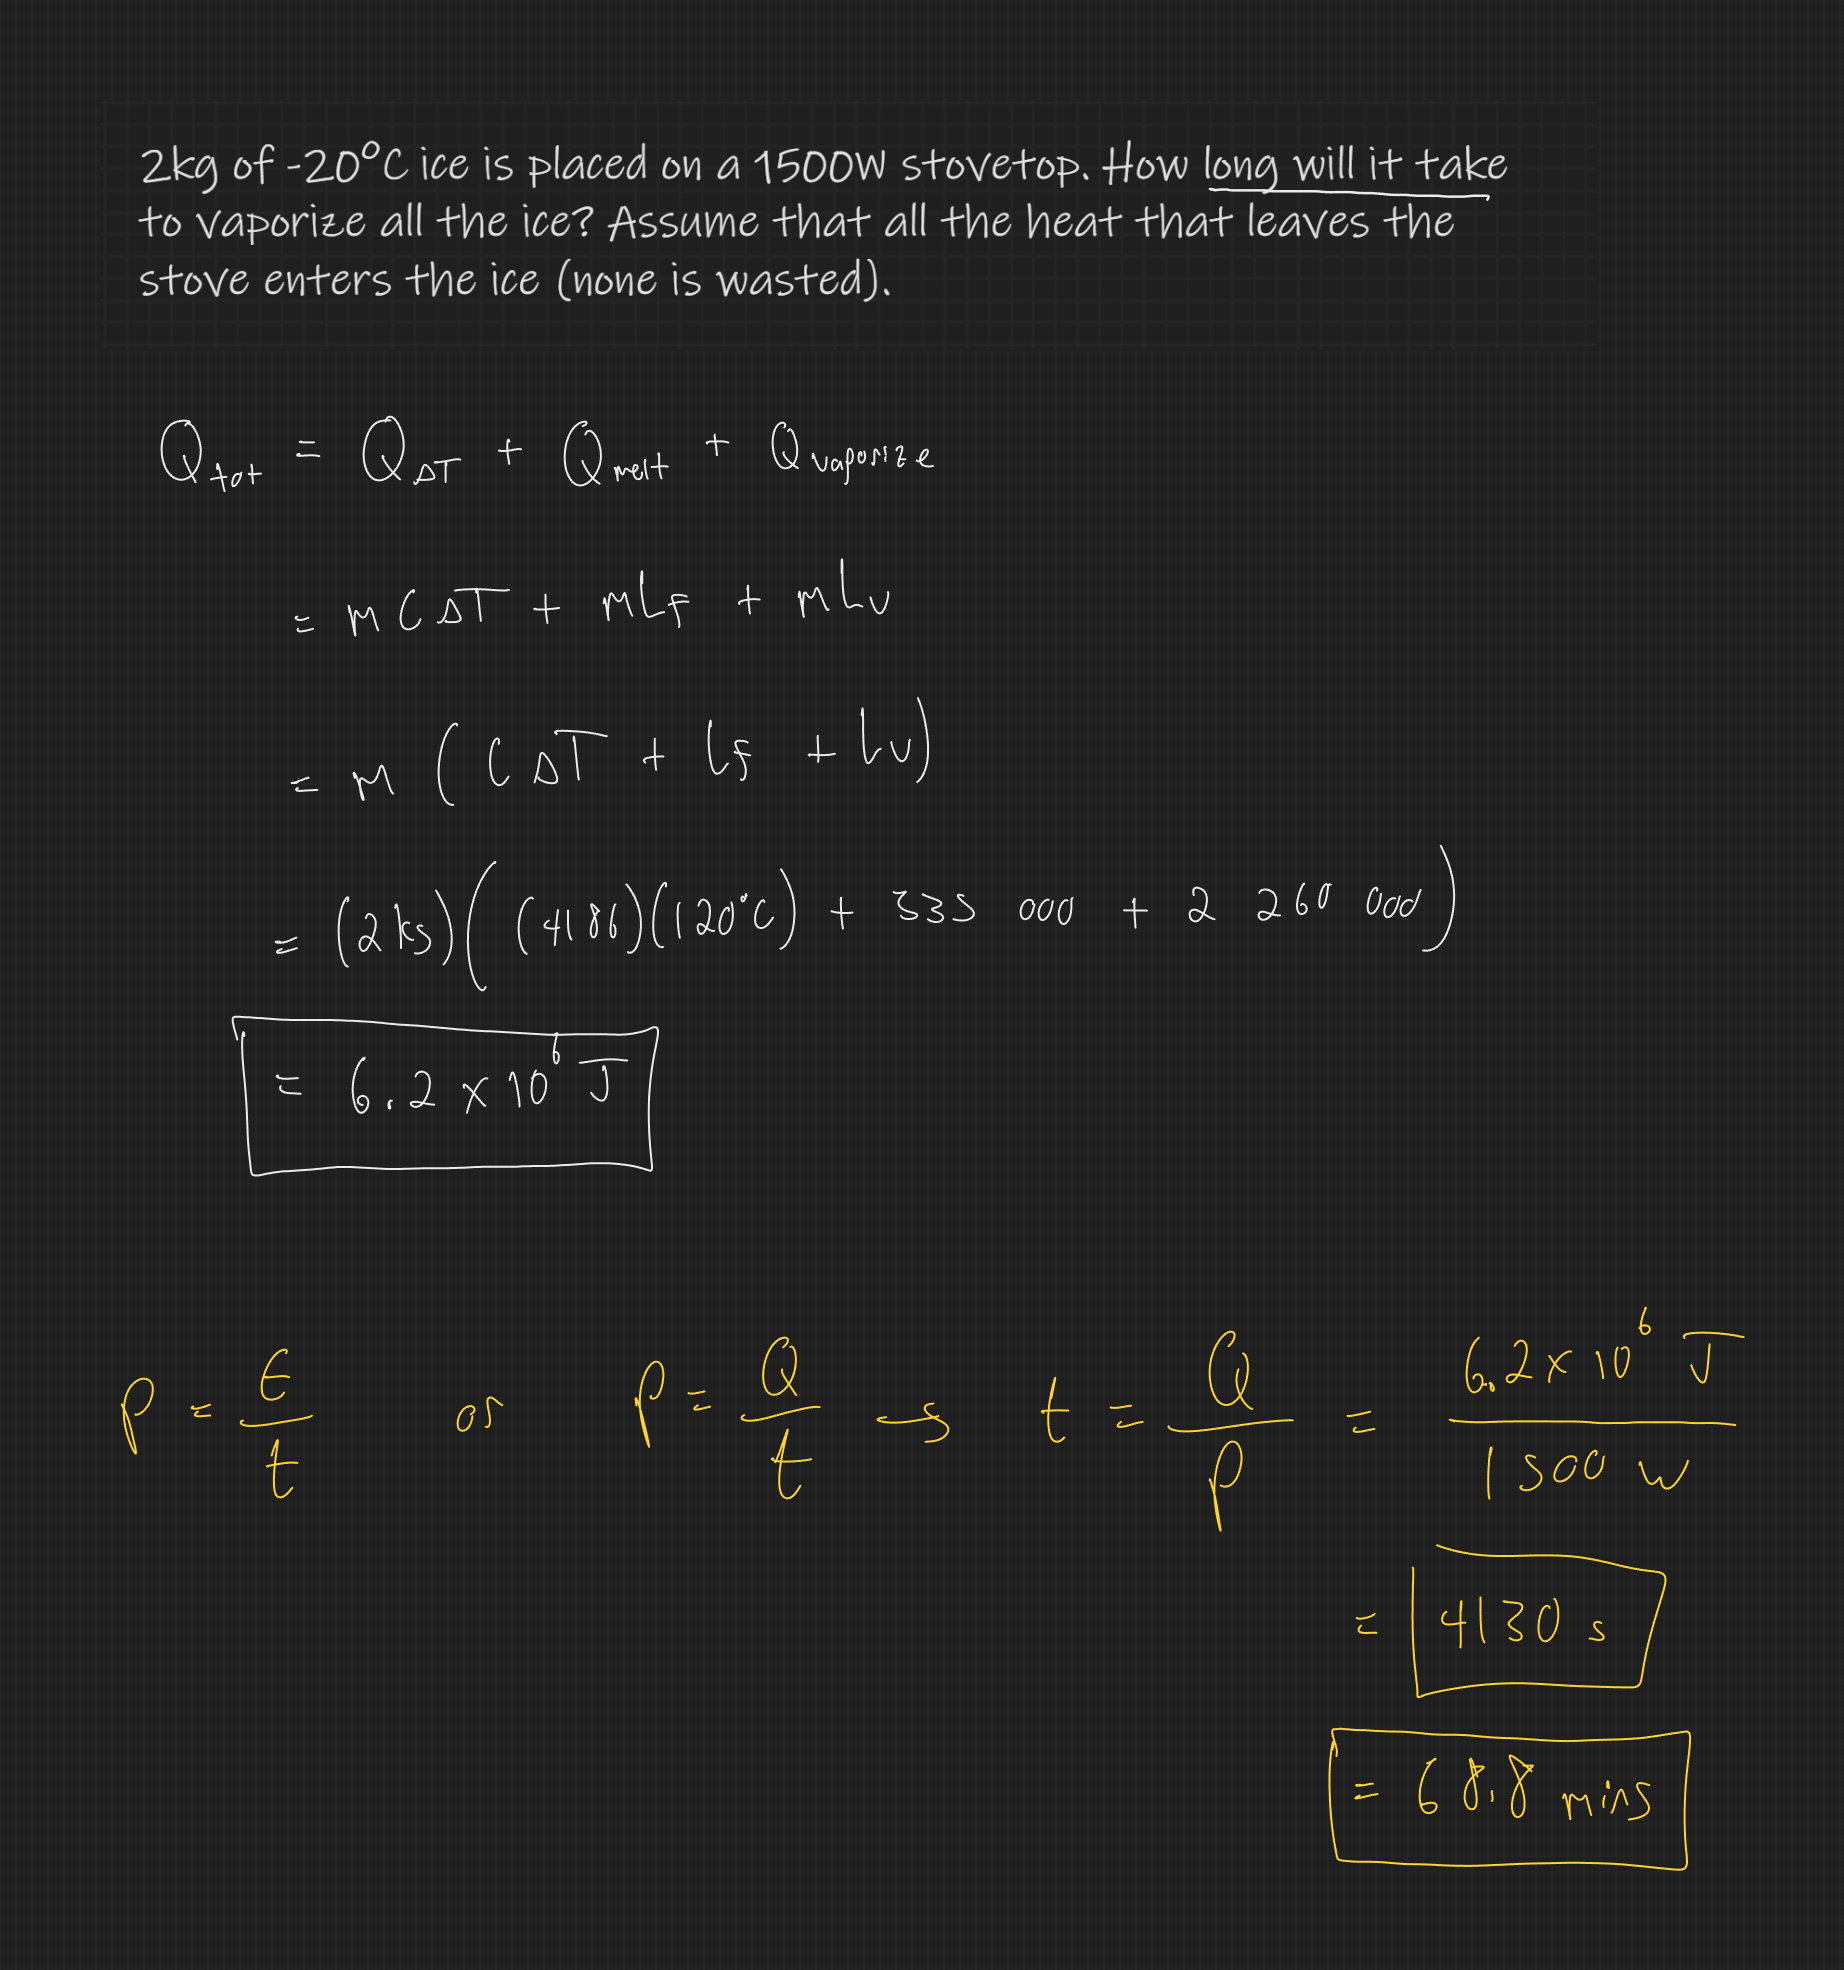 2kg of -20°C ice is placed on a 1500W stovetop. How long will it take
to vaporize all the ice? Assume that all the heat that leaves the
stove enters the ice (none is wasted).
Q_tot = Q_ΔT + Q_melt + Q_vaporize
= mCΔT + mL_f + mL_v
= m(CΔT + L_f + L_v)
= (2kg)((4186)(120°C) + 335 000 + 2 260 000)
= 6.2 × 10^6 J
P = E/t or P = Q/t → t = Q/P = 6.2 × 10^6 J / 1500 W
= 4130 s
= 68.8 mins